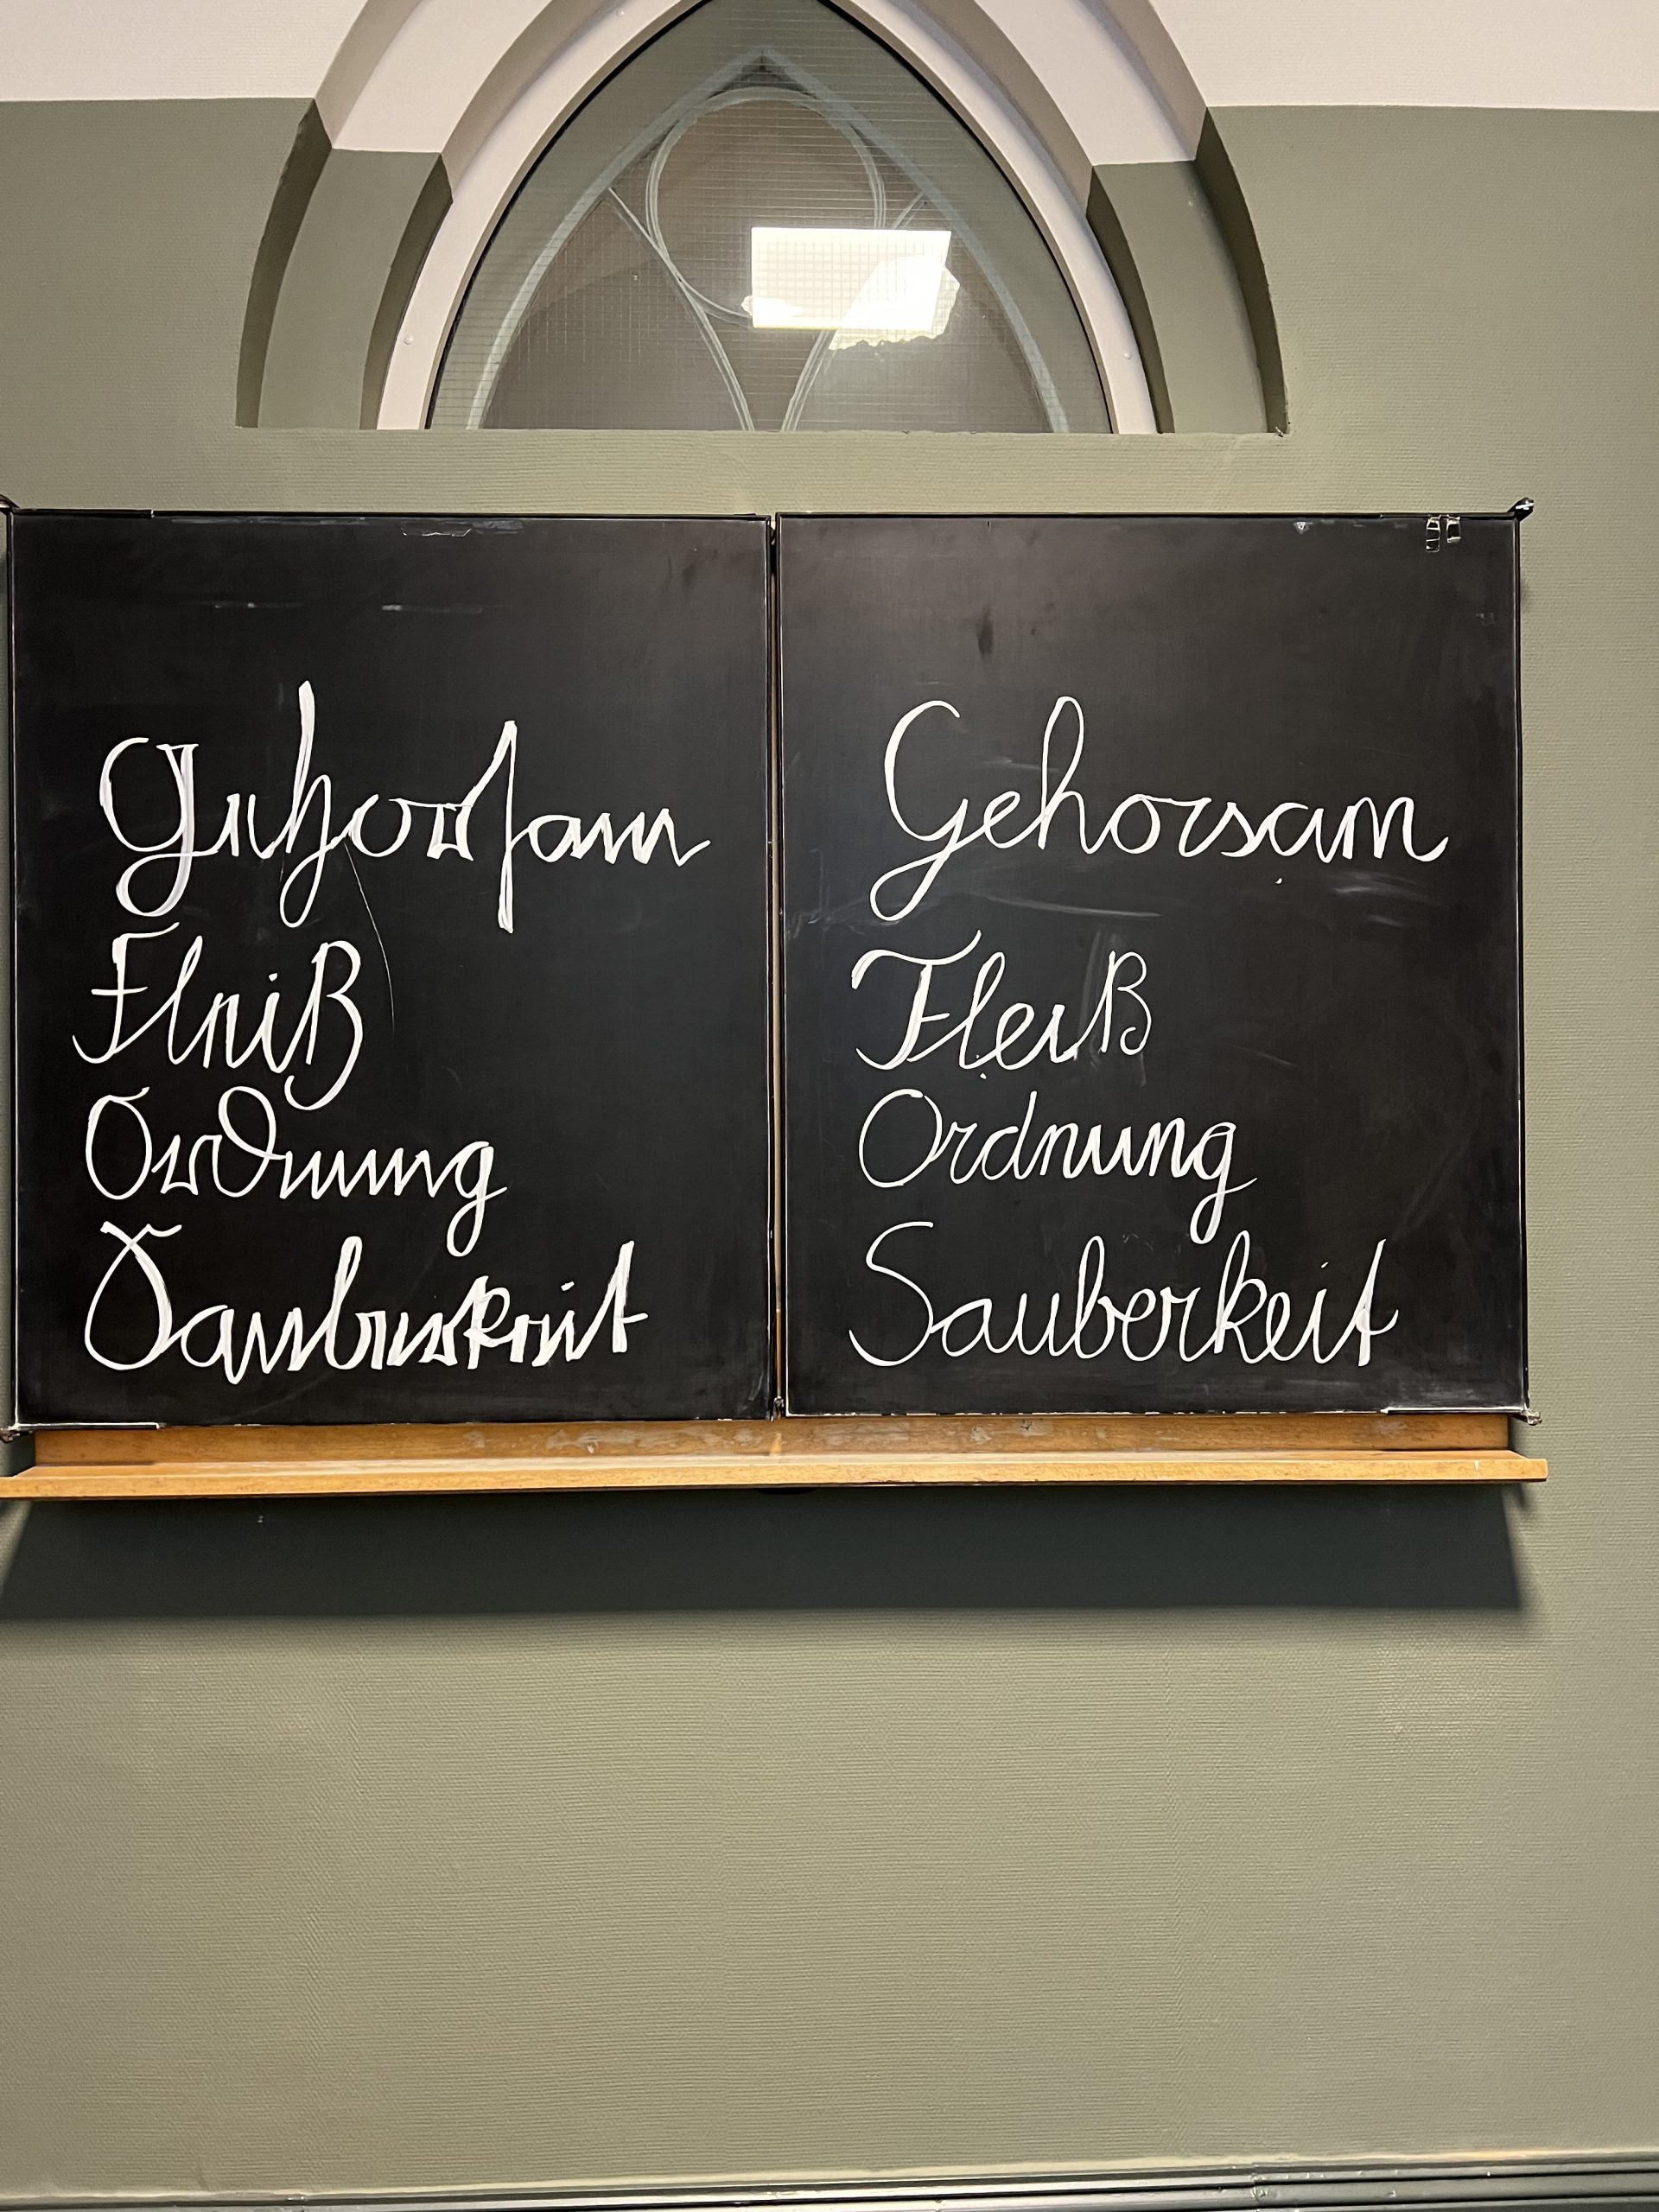 Gehorsam
Fleiß
Ordnung
Sauberkeit
Gehorsam
Fleiß
Ordnung
Sauberkeit